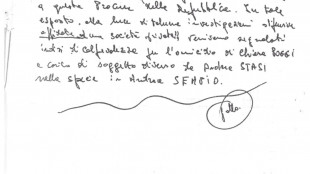 a questa Procura della Repubblica. In tale
esposto, alla luce di talune investigazioni difensive
affidate ad una società privata venivano segnalati
indizi di colpevolezza per l'omicidio di Chiara POGGI
a carico di soggetto diverso da STASI
nella specie in Andrea SEMPIO.